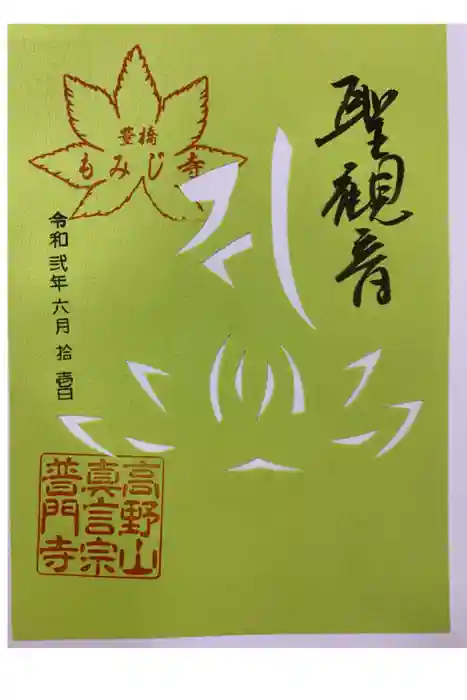 聖観音
豊橋
もみじ寺
令和弐年六月拾壱日
高野山
真言宗
普門寺